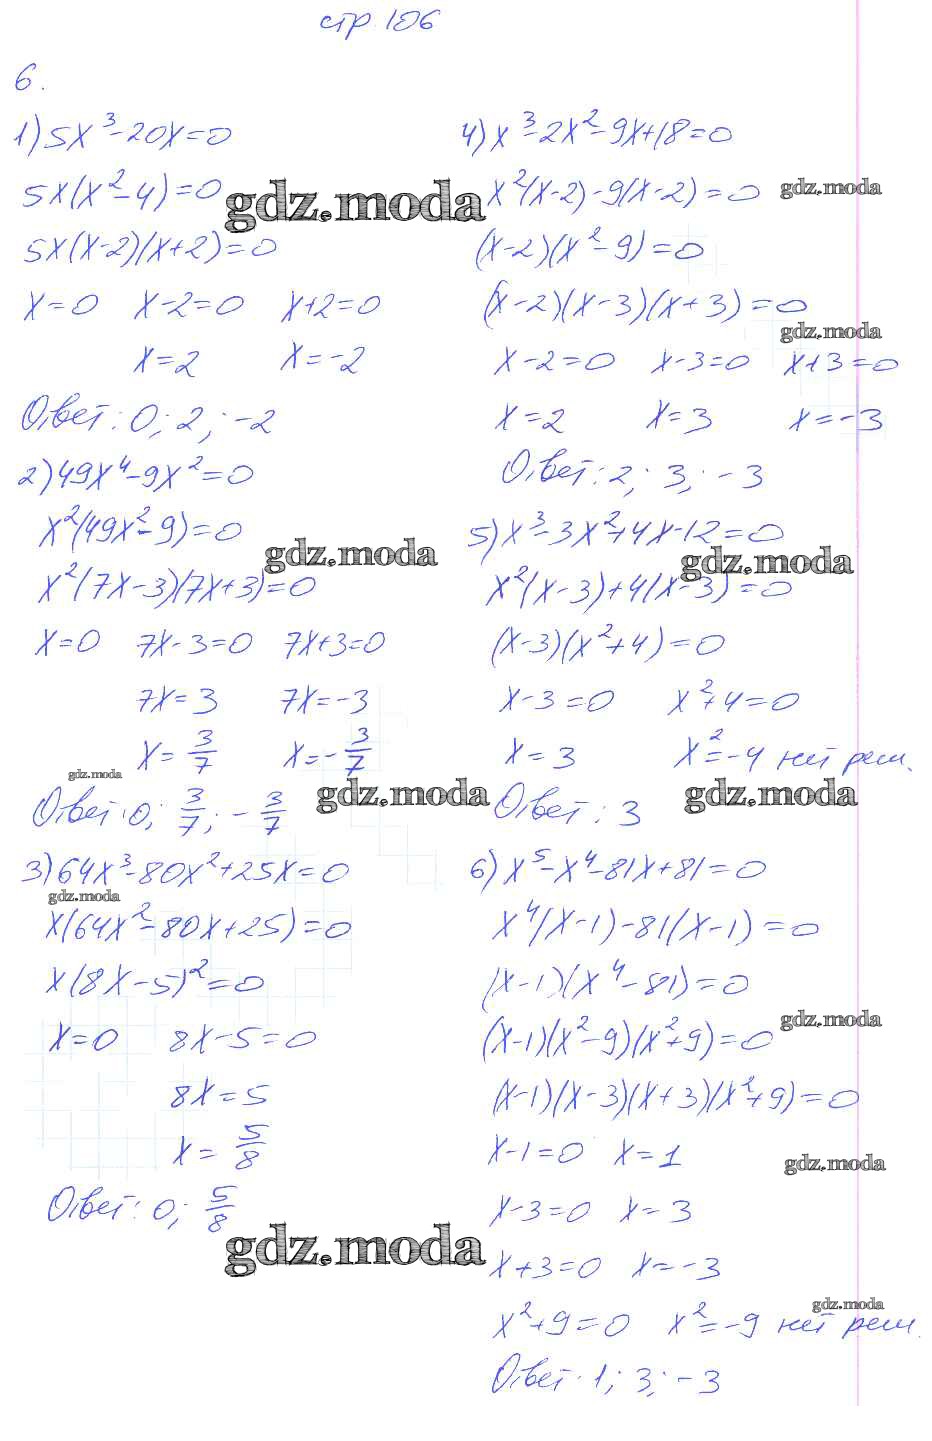 стр. 106
6.
1) 5x³-20x=0
5x(x²-4)=0
5x(x-2)(x+2)=0
x=0 x-2=0 x+2=0
x=2 x=-2
Ответ: 0; 2; -2
2) 49x⁴-9x²=0
x²(49x²-9)=0
x²(7x-3)(7x+3)=0
x=0 7x-3=0 7x+3=0
7x=3 7x=-3
x=3/7 x=-3/7
Ответ: 0; 3/7; -3/7
3) 64x³-80x²+25x=0
x(64x²-80x+25)=0
x(8x-5)²=0
x=0 8x-5=0
8x=5
x=5/8
Ответ: 0; 5/8
4) x³-2x²-9x+18=0
x²(x-2)-9(x-2)=0
(x-2)(x²-9)=0
(x-2)(x-3)(x+3)=0
x-2=0 x-3=0 x+3=0
x=2 x=3 x=-3
Ответ: 2; 3; -3
5) x³-3x²+4x-12=0
x²(x-3)+4(x-3)=0
(x-3)(x²+4)=0
x-3=0 x²+4=0
x=3 x²=-4 нет реш.
Ответ: 3
6) x⁵-x⁴-81x+81=0
x⁴(x-1)-81(x-1)=0
(x-1)(x⁴-81)=0
(x-1)(x²-9)(x²+9)=0
(x-1)(x-3)(x+3)(x²+9)=0
x-1=0 x=1
x-3=0 x=3
x+3=0 x=-3
x²+9=0 x²=-9 нет реш.
Ответ: 1; 3; -3
gdz.moda
gdz.moda
gdz.moda
gdz.moda
gdz.moda
gdz.moda
gdz.moda
gdz.moda
gdz.moda
gdz.moda
gdz.moda
gdz.moda
gdz.moda